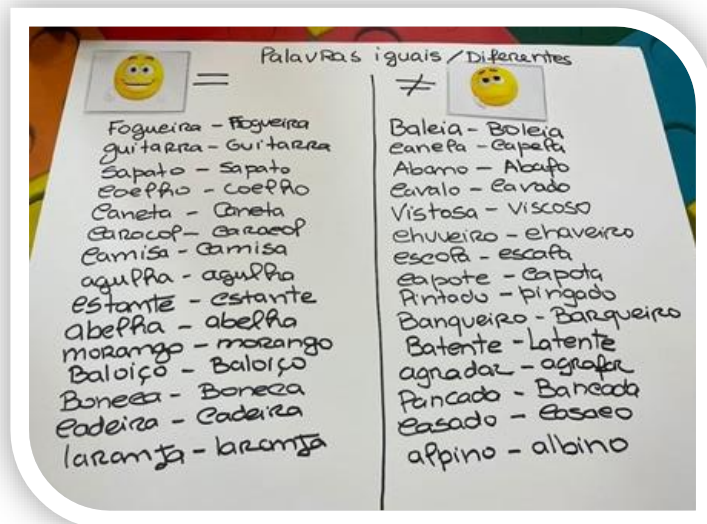 Palavras iguais / Diferentes
= ≠
Fogueira - Fogueira
guitarra - Guitarra
sapato - sapato
coelho - coelho
Caneta - Caneta
Caracol - caracol
Camisa - Camisa
agulha - agulha
estante - estante
abelha - abelha
morango - morango
Baloiço - Baloiço
Boneca - Boneca
Cadeira - Cadeira
laranja - laranja
Baleia - Boleia
canela - capela
Abano - Abafo
Cavalo - Cavado
Vistosa - Viscoso
chuveiro - chaveiro
escola - escala
capote - capota
Pintado - pingado
Banqueiro - Barqueiro
Batente - Latente
agradar - agrafar
Pancada - Bancada
Casado - Casaco
alpino - albino